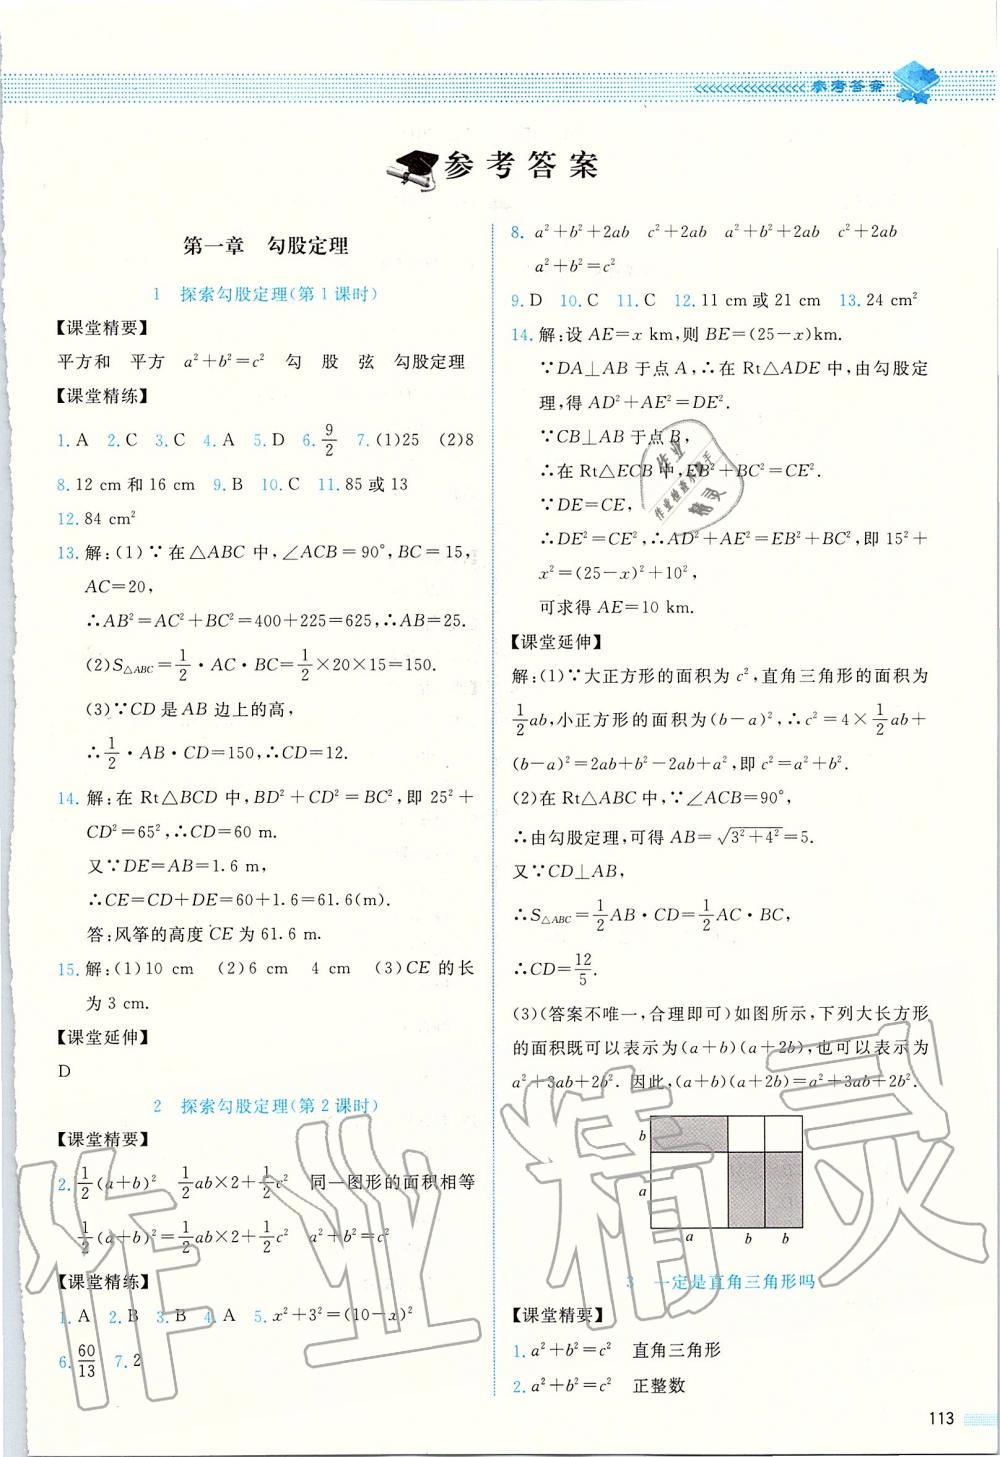 参考答案
参考答案
第一章 勾股定理
1 探索勾股定理(第1课时)
【课堂精要】
平方和 平方 a²+b²=c² 勾 股 弦 勾股定理
【课堂精练】
1. A 2. C 3. C 4. A 5. D 6. 9/2 7. (1)25 (2)8
8. 12 cm 和 16 cm 9. B 10. C 11. 85 或 13
12. 84 cm²
13. 解:(1)∵在△ABC中,∠ACB=90°,BC=15,
AC=20,
∴AB²=AC²+BC²=400+225=625,∴AB=25.
(2)S△ABC=1/2·AC·BC=1/2×20×15=150.
(3)∵CD是AB边上的高,
∴1/2·AB·CD=150,∴CD=12.
14. 解:在Rt△BCD中,BD²+CD²=BC²,即25²+
CD²=65²,∴CD=60 m.
又∵DE=AB=1.6 m,
∴CE=CD+DE=60+1.6=61.6(m).
答:风筝的高度CE为61.6 m.
15. 解:(1)10 cm (2)6 cm 4 cm (3)CE的长
为3 cm.
【课堂延伸】
D
2 探索勾股定理(第2课时)
【课堂精要】
2. 1/2(a+b)² 1/2ab×2+1/2c² 同一图形的面积相等
1/2(a+b)²=1/2ab×2+1/2c² a²+b²=c²
【课堂精练】
1. A 2. B 3. B 4. A 5. x²+3²=(10-x)²
6. 60/13 7. 2
8. a²+b²+2ab c²+2ab a²+b²+2ab c²+2ab
a²+b²=c²
9. D 10. C 11. C 12. 11 cm或21 cm 13. 24 cm²
14. 解:设AE=x km,则BE=(25-x)km.
∵DA⊥AB于点A,∴在Rt△ADE中,由勾股定
理,得AD²+AE²=DE².
∵CB⊥AB于点B,
∴在Rt△ECB中,EB²+BC²=CE².
∵DE=CE,
∴DE²=CE²,∴AD²+AE²=EB²+BC²,即15²+
x²=(25-x)²+10²,
可求得AE=10 km.
【课堂延伸】
解:(1)∵大正方形的面积为c²,直角三角形的面积为
1/2ab,小正方形的面积为(b-a)²,∴c²=4×1/2ab+
(b-a)²=2ab+b²-2ab+a²,即c²=a²+b².
(2)在Rt△ABC中,∵∠ACB=90°,
∴由勾股定理,可得AB=√(3²+4²)=5.
又∵CD⊥AB,
∴S△ABC=1/2AB·CD=1/2AC·BC,
∴CD=12/5.
(3)(答案不唯一,合理即可)如图所示,下列大长方形
的面积既可以表示为(a+b)(a+2b),也可以表示为
a²+3ab+2b². 因此,(a+b)(a+2b)=a²+3ab+2b².
b
a
a b b
3 一定是直角三角形吗
【课堂精要】
1. a²+b²=c² 直角三角形
2. a²+b²=c² 正整数
113
作业
作业检查小助手
精灵
作业精灵